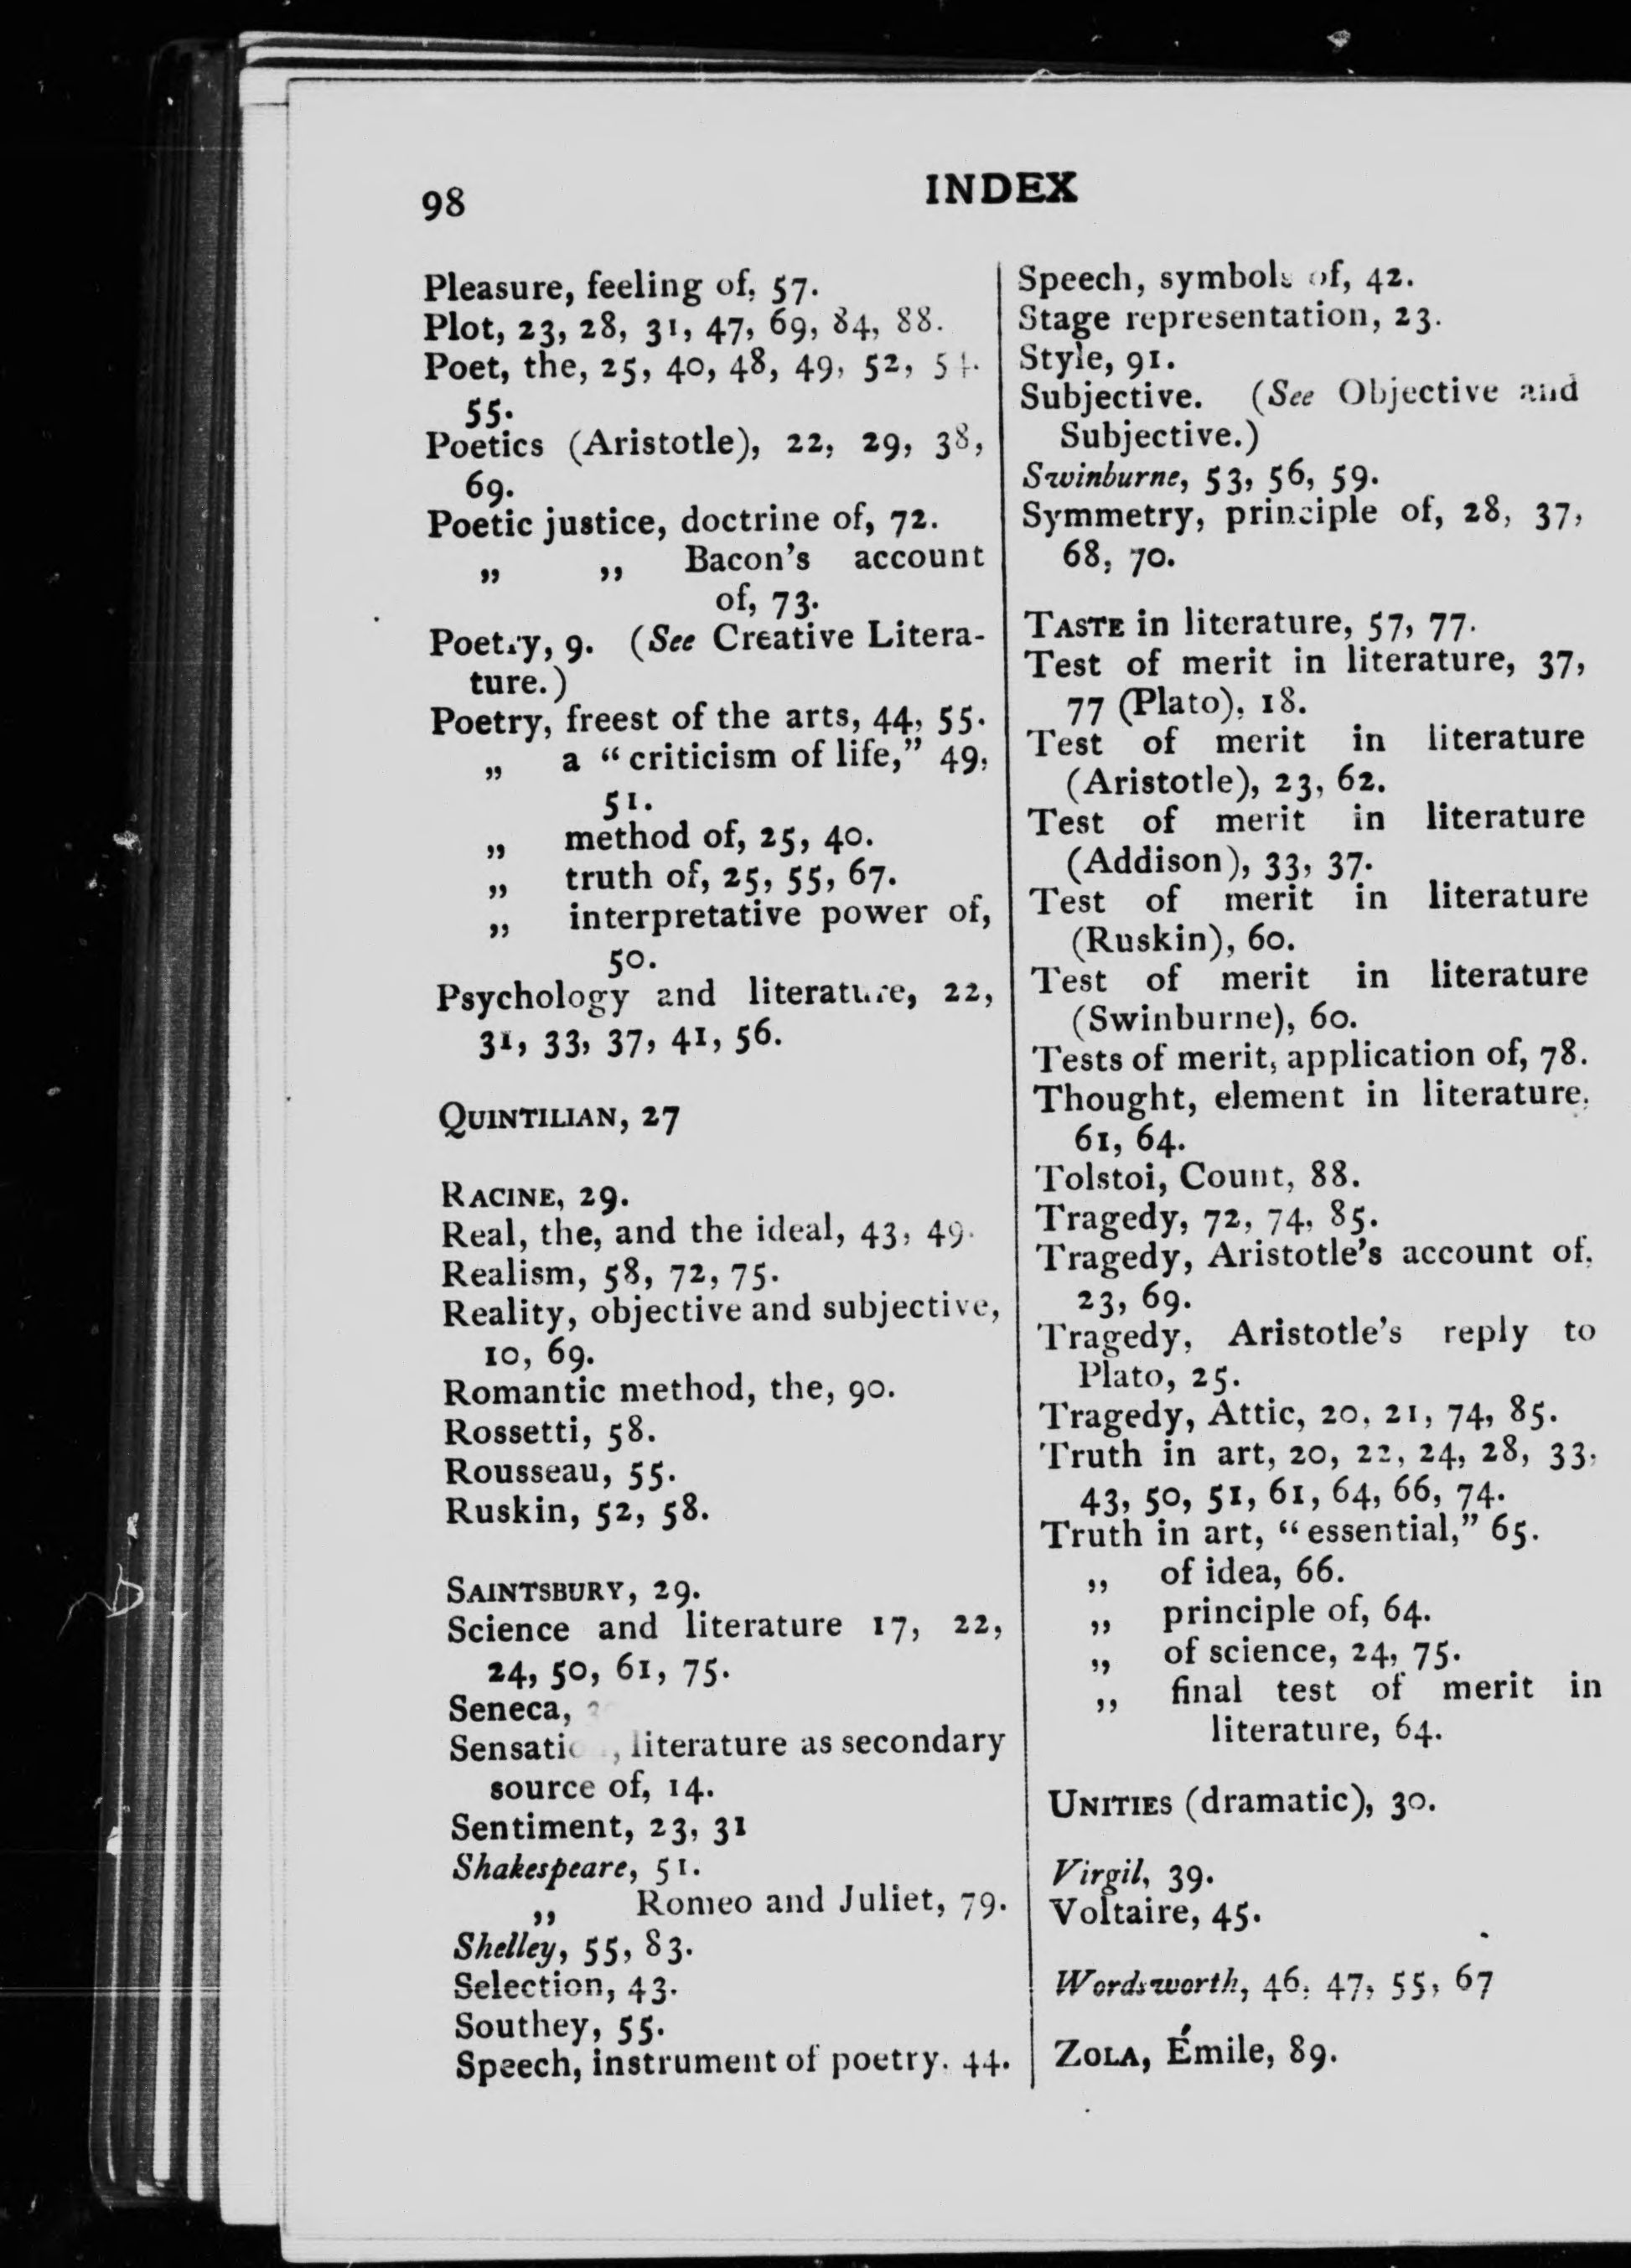 98
INDEX
Pleasure, feeling of, 57.
Plot, 23, 28, 31, 47, 69, 84, 88.
Poet, the, 25, 40, 48, 49, 52, 54.
55.
Poetics (Aristotle), 22, 29, 38,
69.
Poetic justice, doctrine of, 72.
„ „ Bacon's account
of, 73.
Poetry, 9. (See Creative Litera-
ture.)
Poetry, freest of the arts, 44, 55.
„ a “criticism of life,” 49,
51.
„ method of, 25, 40.
„ truth of, 25, 55, 67.
„ interpretative power of,
50.
Psychology and literature, 22,
31, 33, 37, 41, 56.
QUINTILIAN, 27
RACINE, 29.
Real, the, and the ideal, 43, 49.
Realism, 58, 72, 75.
Reality, objective and subjective,
10, 69.
Romantic method, the, 90.
Rossetti, 58.
Rousseau, 55.
Ruskin, 52, 58.
SAINTSBURY, 29.
Science and literature 17, 22,
24, 50, 61, 75.
Seneca,
Sensation, literature as secondary
source of, 14.
Sentiment, 23, 31
Shakespeare, 51.
„ Romeo and Juliet, 79.
Shelley, 55, 83.
Selection, 43.
Southey, 55.
Speech, instrument of poetry. 44.
Speech, symbols of, 42.
Stage representation, 23.
Style, 91.
Subjective. (See Objective and
Subjective.)
Swinburne, 53, 56, 59.
Symmetry, principle of, 28, 37,
68, 70.
TASTE in literature, 57, 77.
Test of merit in literature, 37,
77 (Plato), 18.
Test of merit in literature
(Aristotle), 23, 62.
Test of merit in literature
(Addison), 33, 37.
Test of merit in literature
(Ruskin), 60.
Test of merit in literature
(Swinburne), 60.
Tests of merit, application of, 78.
Thought, element in literature,
61, 64.
Tolstoi, Count, 88.
Tragedy, 72, 74, 85.
Tragedy, Aristotle's account of,
23, 69.
Tragedy, Aristotle's reply to
Plato, 25.
Tragedy, Attic, 20, 21, 74, 85.
Truth in art, 20, 22, 24, 28, 33,
43, 50, 51, 61, 64, 66, 74.
Truth in art, “essential,” 65.
„ of idea, 66.
„ principle of, 64.
„ of science, 24, 75.
„ final test of merit in
literature, 64.
UNITIES (dramatic), 30.
Virgil, 39.
Voltaire, 45.
Wordsworth, 46, 47, 55, 67
ZOLA, Émile, 89.